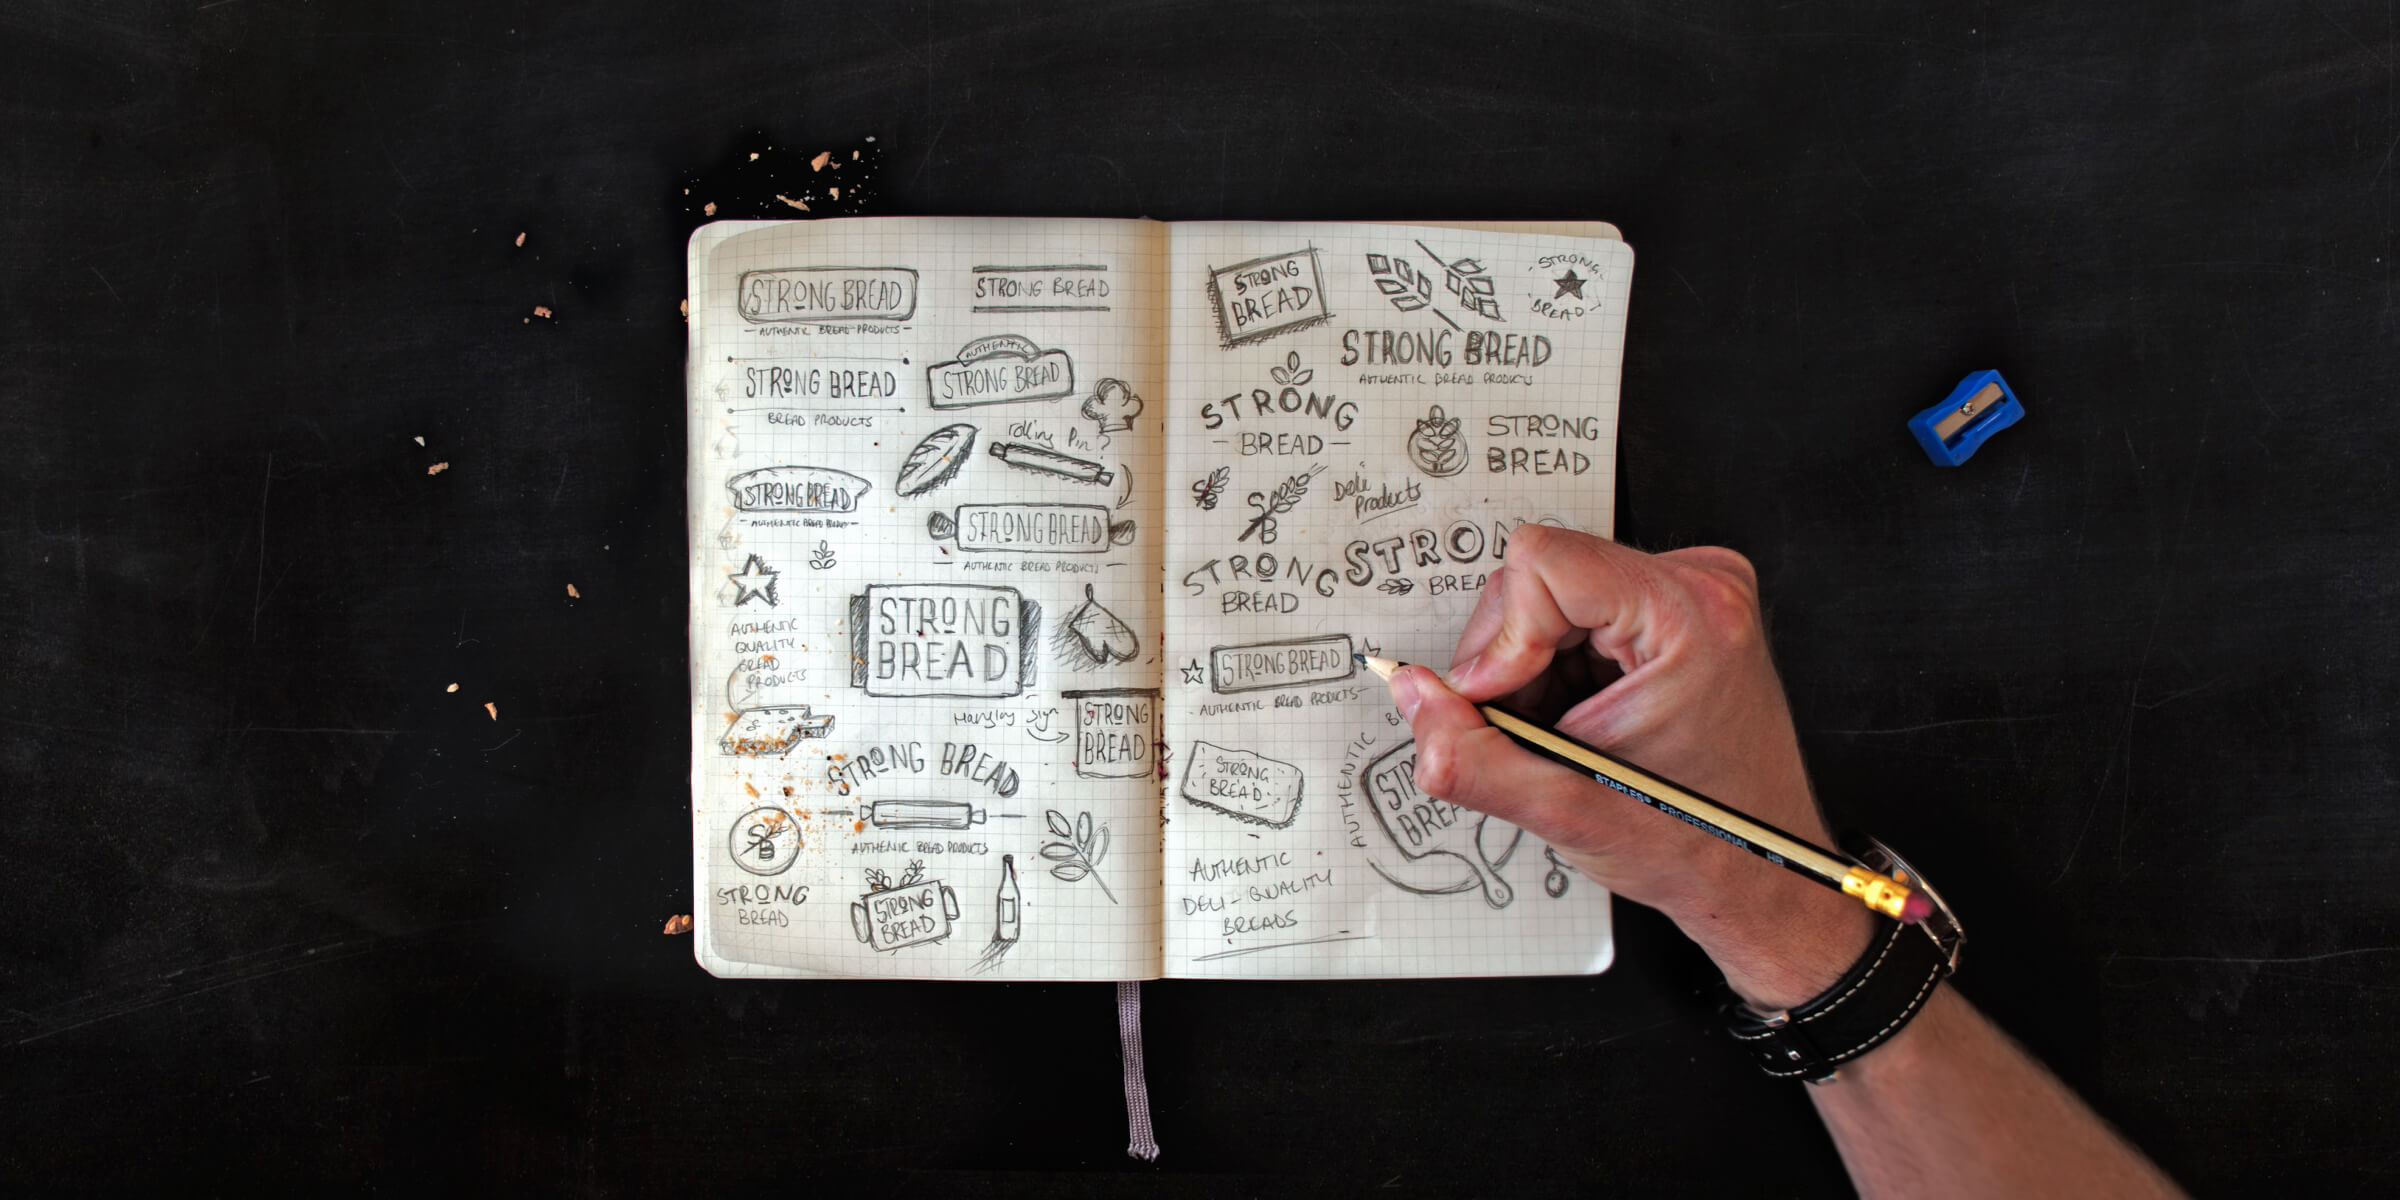 STRONG BREAD
AUTHENTIC BREAD PRODUCTS
STRONG BREAD
STRONG BREAD
BREAD PRODUCTS
AUTHENTIC
STRONG BREAD
rolling Pin?
STRONG BREAD
AUTHENTIC BREAD PRODUCTS
STRONG BREAD
AUTHENTIC BREAD PRODUCTS
AUTHENTIC
QUALITY
BREAD
PRODUCTS
STRONG
BREAD
Hanging Sign
STRONG
BREAD
STRONG BREAD
AUTHENTIC BREAD PRODUCTS
SB
STRONG
BREAD
STRONG
BREAD
STRONG
BREAD
STRONG
BREAD
STRONG BREAD
AUTHENTIC BREAD PRODUCTS
STRONG
BREAD
STRONG
BREAD
SB
SB
Deli
Products
STRONG
BREAD
STRON
BREA
STRONG BREAD
AUTHENTIC BREAD PRODUCTS
STRONG
BREAD
AUTHENTIC
BREA
AUTHENTIC
DELI-QUALITY
BREADS
STAPLES® PROFESSIONAL HB